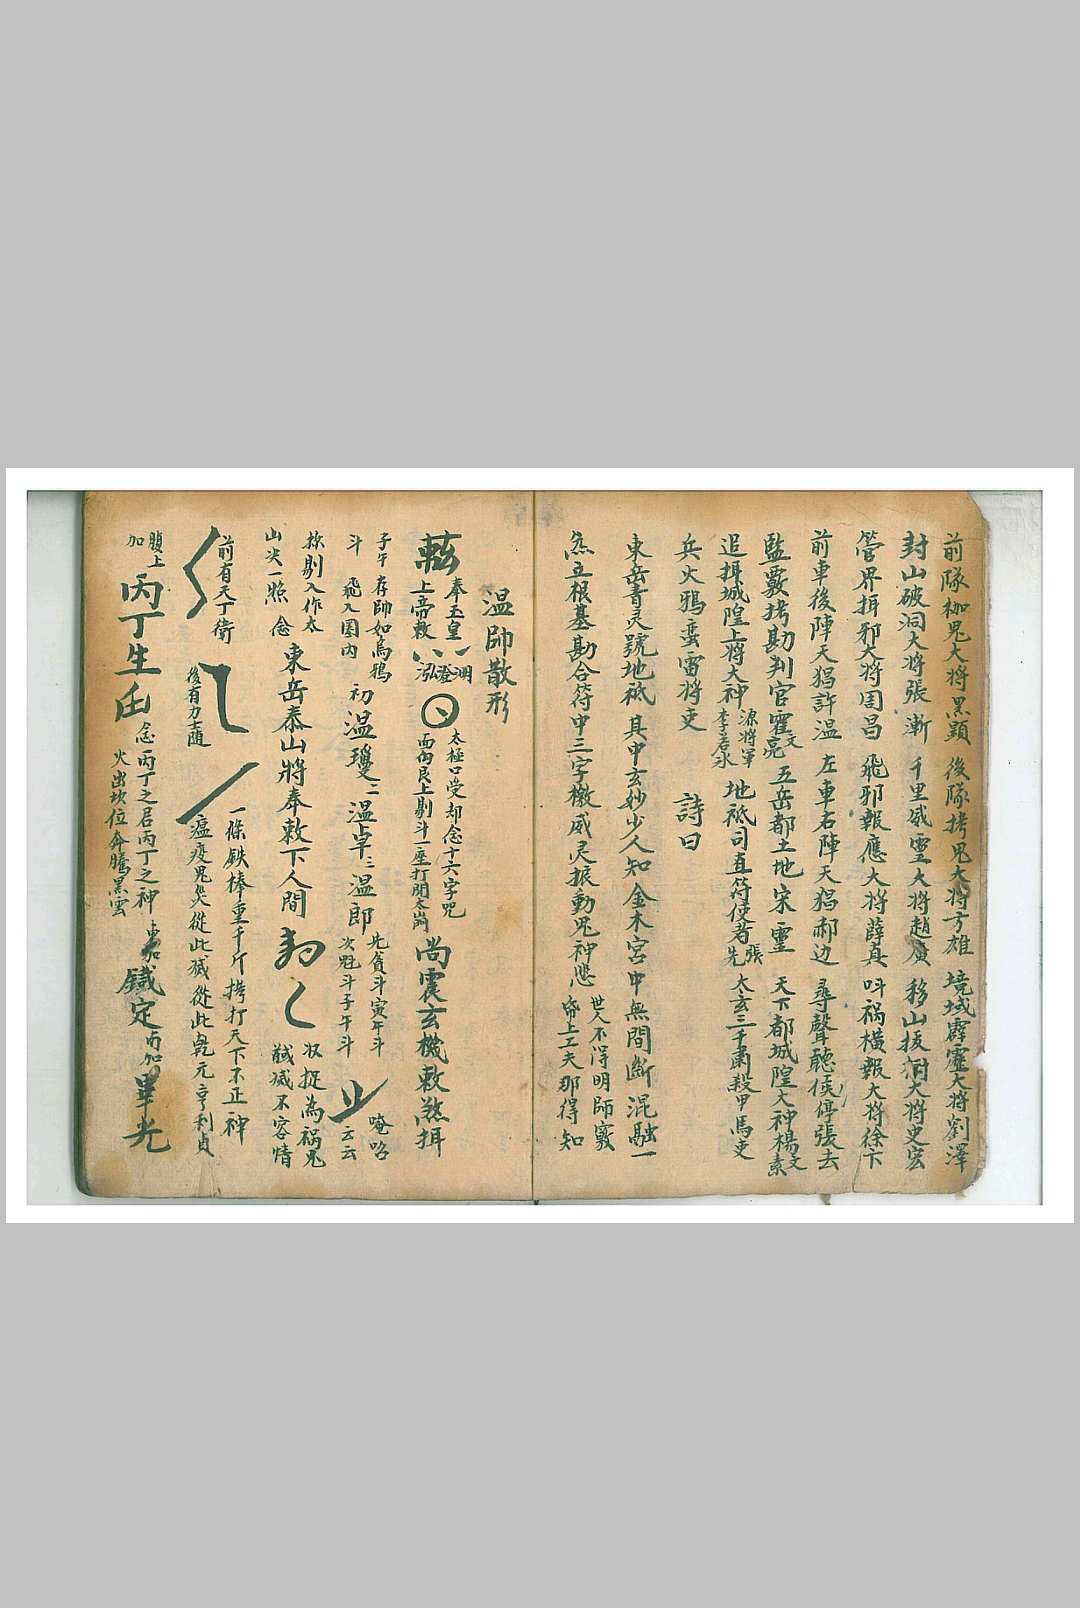 前隊枷鬼大將黑顕 後隊拷鬼大將方雄 境域霹靂大將劉澤
封山破洞大將張漸 千里威霊大將趙廣 移山拔洞大將史宏
管界捐邪大將周昌 飛邪報應大將薛真 呌祸橫報大將徐卞
前車後陣天猖許温 左車右陣天猖郝边 尋聲聽候停張去
監覈拷勘判官霍文亮 五岳都土地宋霊 天下都城隍大神楊文素
追捐城隍上將大神源將軍李若水 地祇司直符使者張先 太玄三千肅殺甲馬吏
兵火鴉蛮雷將吏 詩曰
東岳青灵號地祇 其中玄妙少人知 金木宮中無間斷 混融一
炁立根基 勘合符中三字檄 威灵振動鬼神悲 世人不得明師竅
席上工夫那得知
温帥散形
奉玉皇
上帝敕
泓澄渊
太極口受却念十六字咒
面向艮上剔斗一座打開太山
尚震玄機敕煞捐
子午 存帥如烏鴉
斗 飛入圈內
初温瓊二温卓三温郎
先貪斗寅午斗
次魁斗子午斗
唵吽
云云
捺剔入作太
山尖一照 念
東岳泰山將奉敕下人間
収捉為祸鬼
馘滅不容情
前有天丁衛
後有力士随
一條鉄棒重千斤拷打天下不正神
瘟疫鬼災從此滅從此乾元亨利貞
腹上
加
丙丁生
念丙丁之君丙丁之神
火出坎位奔騰黑雲
加
鐵定
而加
畢光